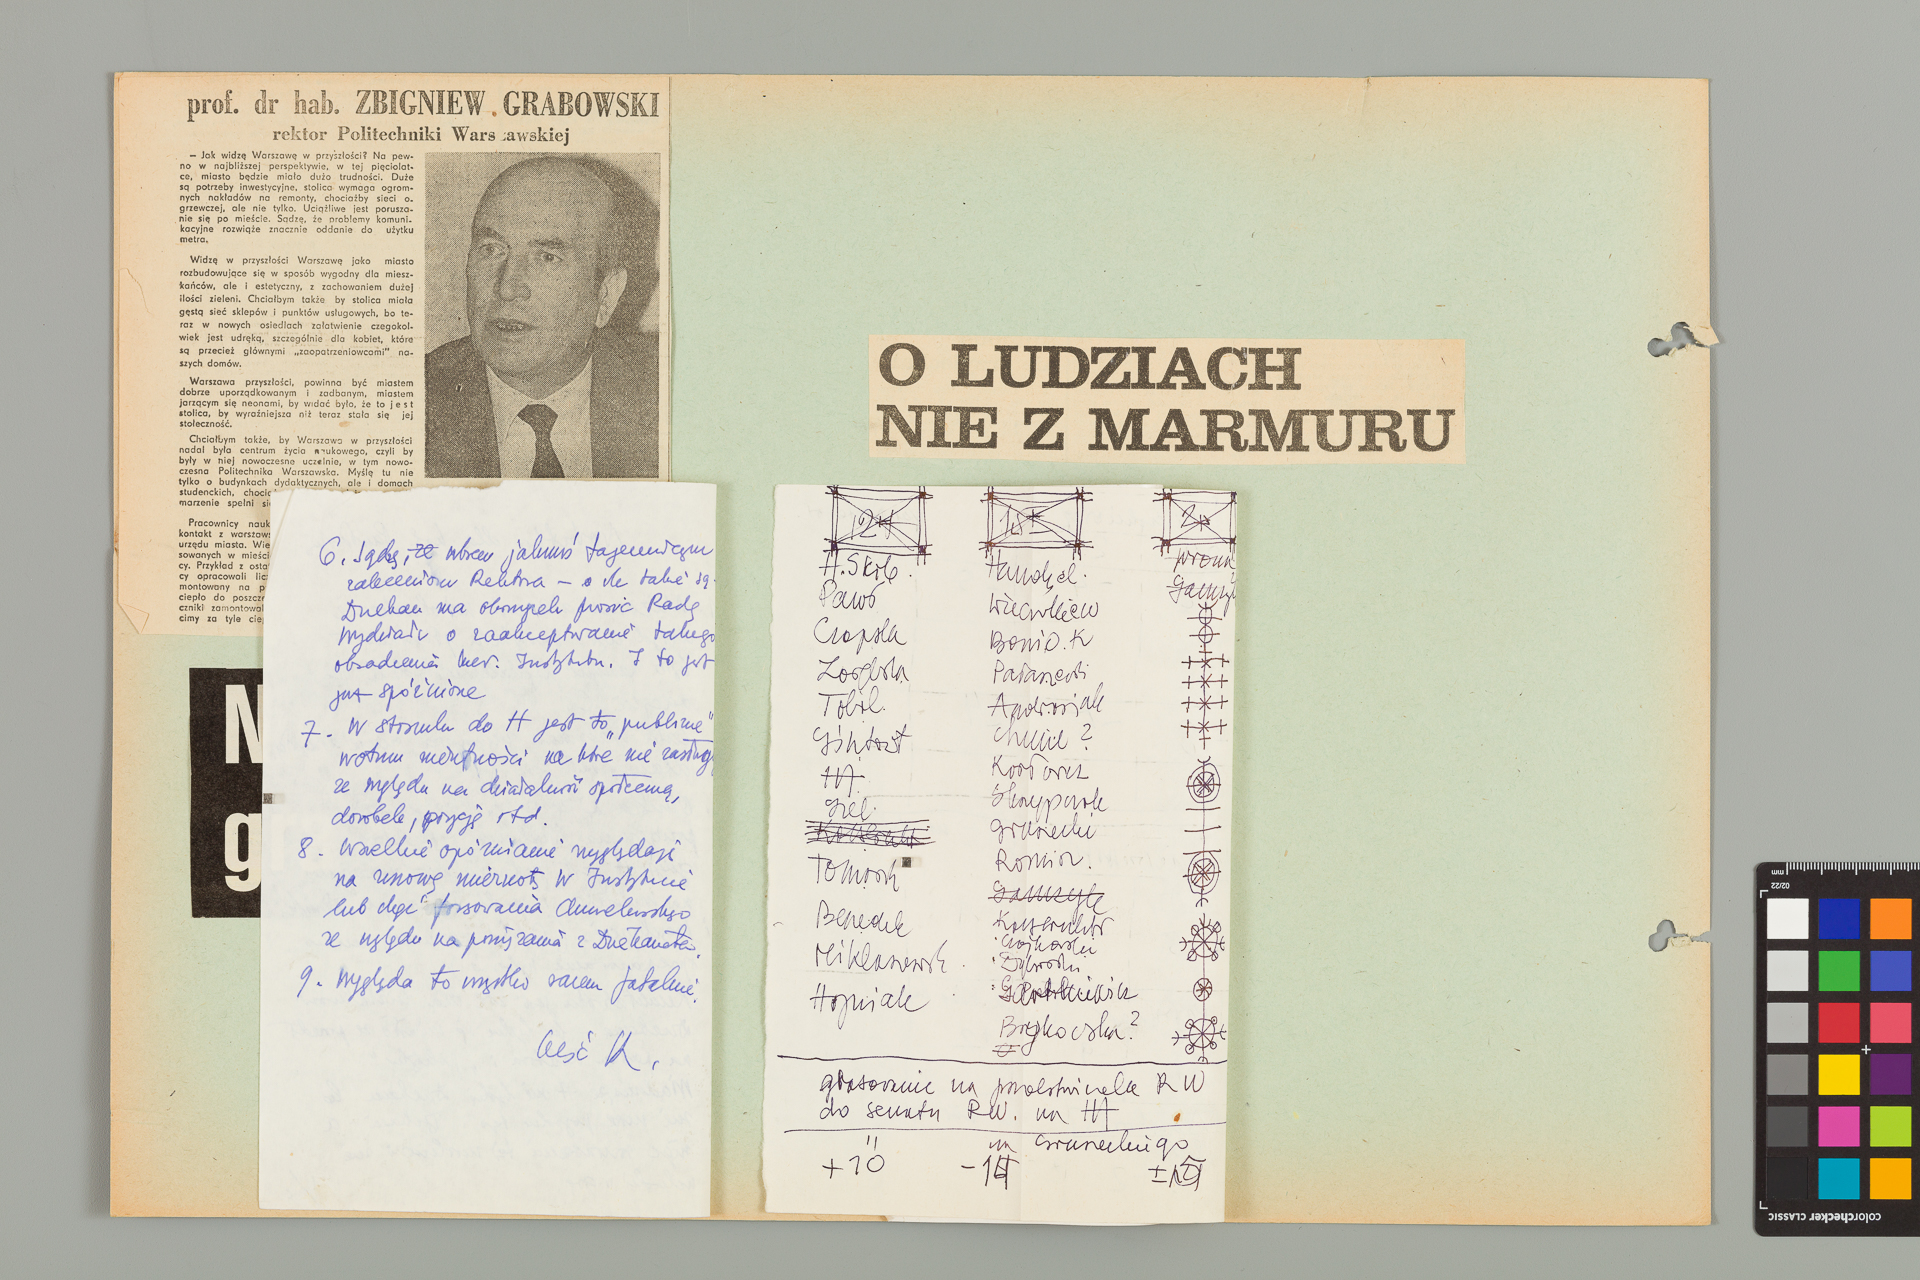 prof. dr hab. ZBIGNIEW GRABOWSKI
rektor Politechniki Warszawskiej
— Jak widzę Warszawę w przyszłości? Na pew-
no w najbliższej perspektywie, w tej pięciolat-
ce, miasto będzie miało dużo trudności. Duże
są potrzeby inwestycyjne, stolica wymaga ogrom-
nych nakładów na remonty, chociażby sieci o-
grzewczej, ale nie tylko. Uciążliwe jest porusza-
nie się po mieście. Sądzę, że problemy komuni-
kacyjne rozwiąże znacznie oddanie do użytku
metra.
Widzę w przyszłości Warszawę jako miasto
rozbudowujące się w sposób wygodny dla miesz-
kańców, ale i estetyczny, z zachowaniem dużej
ilości zieleni. Chciałbym także by stolica miała
gęstą sieć sklepów i punktów usługowych, bo te-
raz w nowych osiedlach załatwienie czegokol-
wiek jest udręką, szczególnie dla kobiet, które
są przecież głównymi „zaopatrzeniowcami" na-
szych domów.
Warszawa przyszłości, powinna być miastem
dobrze uporządkowanym i zadbanym, miastem
jarzącym się neonami, by widać było, że to jest
stolica, by wyraźniejsza niż teraz stała się jej
stołeczność.
Chciałbym także, by Warszawa w przyszłości
nadal była centrum życia naukowego, czyli by
były w niej nowoczesne uczelnie, w tym nowo-
czesna Politechnika Warszawska. Myślę tu nie
tylko o budynkach dydaktycznych, ale i domach
studenckich,
marzenie spełni
Pracownicy nauk
kontakt z warszaws
urzędu miasta. Wie
sowanych w mieści
cy. Przykład z osta
cy opracowali licz
montowany na p
ciepło do poszcze
czniki zamontował
cimy za tyle cie
O LUDZIACH
NIE Z MARMURU
N
g
6. Sądzę, że wbrew jakimś tajemniczym
zaleceniom Rektora – o ile takie są
Dziekan ma obowiązek prosić Radę
Wydziału o zaakceptowanie takiego
obsadzenia kier. Instytutu. I to jest
już spóźnione
7. W stosunku do H jest to „publiczne"
wotum nieufności na które nie zasług
ze względu na działalność społeczną,
dorobek, pozycję itd.
8. Wszelkie opóźnianie wyglądają
na zmowę miernoty w Instytucie
lub chęć forsowania Chmielewskiego
ze względu na powiązania z Dziekanatem.
9. Wygląda to wszystko razem fatalnie.
Cześć K.
12+
H. Skib.
Pawó
Czapska
Tobol.
HA
Tomask
Benedek
Miklaszewsk
Hojniak
Handzel.
Wieczorkiew
Bonio. K
Paraszewski
Andrusiak
Chmiel ?
Skrypczak
Grunecki
Czajkowski
Brzykowska?
głosowanie na przedstawiciela RW
do senatu RW. na HA
na Gruneckiego
+10
-14